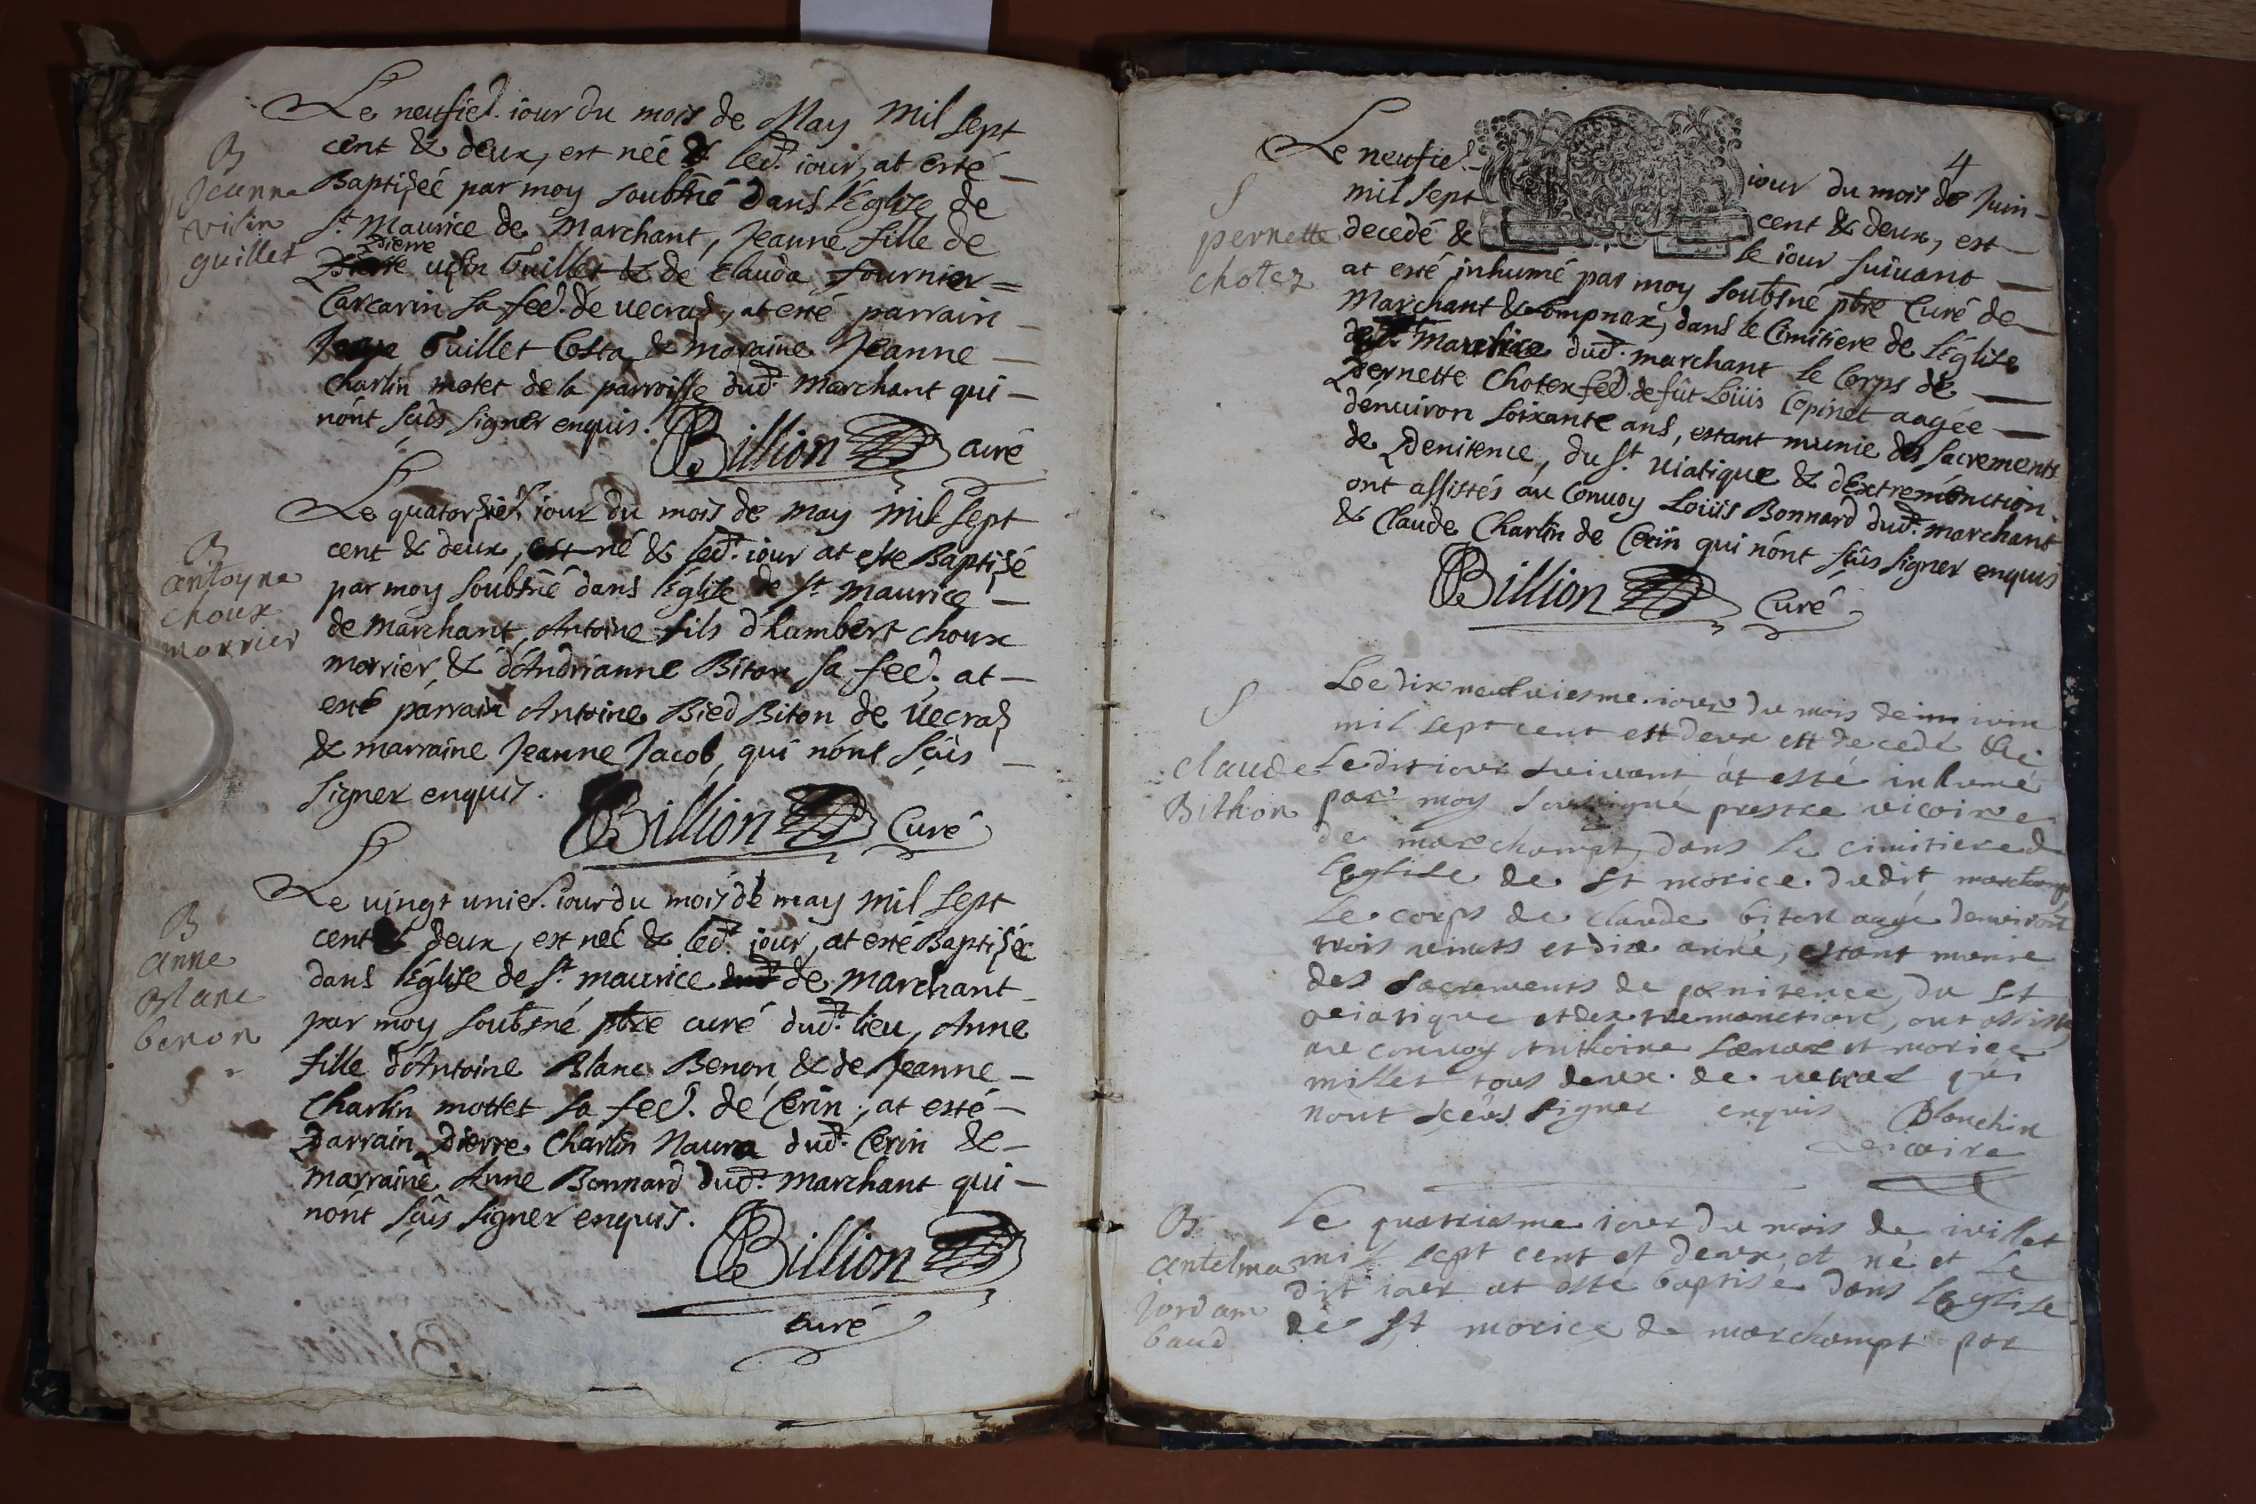 Le neufie. jour du mois de May mil sept
cent & deux, est neé & led. jour, at esté
B
Jeanne
visin
guillet
Baptiseé par moy soubsné dans l'Église de
St. Maurice de Marchant, Jeanne fille de
Pierre
Pierre visin Guillet & de Clauda fournier
Carcarin sa fee. de vecras, at esté parrain
Guillet Costa & moraine Jeanne
Charlin motet de la parroisse dud. Marchant qui
nónt sçûs signer enquis.
Billion curé
Le quatorsie. jour du mois de may mil sept
cent & deux, est né & led. jour at esté Baptisé
B
antoyne
choux
morrier
par moy soubsné dans l'Église de St. Maurice
de Marchant, Antoine fils d'Lambert choux
morrier & d'Andrianne Biton sa fee. at
esté párrain Antoine Bied Biton de Vecras
& marraine Jeanne Jacob, qui nónt sçûs
signer enquis.
Billion Curé
Le vingt unie. jour du mois de may mil sept
cent & deux, est neé & led. jour, at esté Baptiseé
B
anne
blanc
benon
dans l'Église de St. maurice dud. de Marchant
par moy soubsné pbre curé dud. lieu, Anne
fille d'Antoine Blanc Benon & de Jeanne
Charlin mottet sa fee. de Cerin, at esté
Parrain Pierre Charlin Naura dud. Cerin &
marraine Anne Bonnard dud. Marchant qui
nónt sçûs signer enquis.
Billion
curé
4
Le neufie. jour du mois de Juin
mil sept cent & deux, est
S
pernette
chotex
decedé & le jour suivant
at esté inhumé par moy soubsné pbre Curé de
Marchant & Compnax, dans le Cimitiere de l'Église
de St. Maurice dud. marchant le Corps de
Pernette Chotex fee. de fût Loüis Copinet aagée
denuiron soixante ans, estant munie des sacrements
de Penitence, du St. viatique & d'Extremónction
ont assistés au Convoy Loüis Bonnard dud. marchant
& Claude Charlin de Cerin qui nónt sçûs signer enquis
Billion Curé
S
claude
Bithon
Le dix neufviesme jour du mois de juin
mil sept cent et deux est decedé &
Ledit jour suivant at esté inhumé
par moy soussigné prestre vicaire
de marchampt dans le cimitiere d
l'eglise de st morice dudit marchampt
Le corps de claude biton aagé denviront
trois vints et dix anné, estant munie
des sacrements de pœnitence, du st
veiatique et dextremonction, ont assisté
au convoy Anthoine et morice
millet tous deux de vecras qui
nont sceus signer enquis
Blonchin
vicaire
B
antelma
jordam
baud
Le quatriesme jour du mois de juillet
mil sept cent et deux et né et le
dit jour at esté baptisé dans l'eglise
de st morice de marchampt par